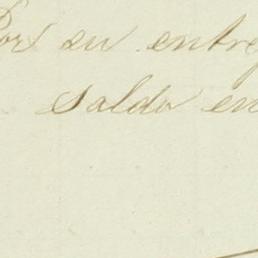 Por su entre
Saldo en